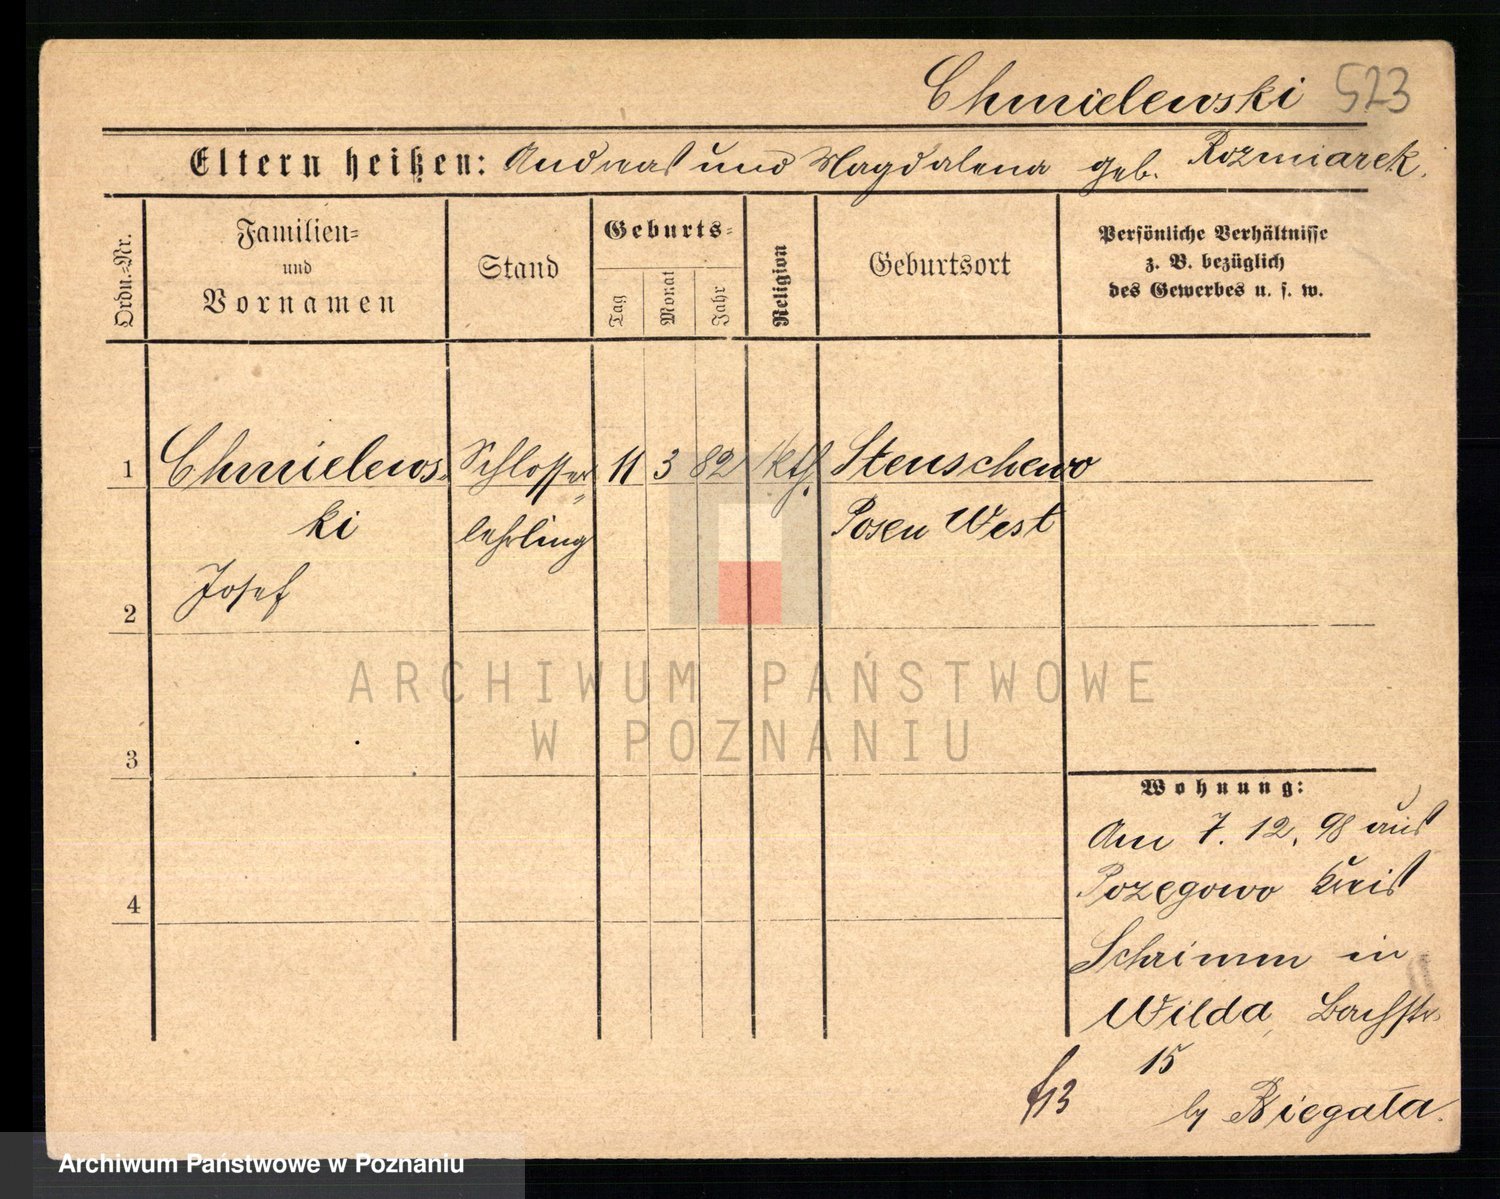 Chmielewski 523
Eltern heißen: Andreas und Magdalena geb. Rozmiarek.
Ordn.-Nr.
Familien-
und
Vornamen
Stand
Geburts-
Tag
Monat
Jahr
Religion
Geburtsort
Persönliche Verhältnisse
z. B. bezüglich
des Gewerbes u. s. w.
1 Chmielews- Schlosser- 11 3 82 kth. Stenschewo
ki lehrling Posen West
Josef
2
ARCHIWUM PAŃSTWOWE
W POZNANIU
3
Wohnung:
Am 7. 12. 98 aus
Pozegowo Kreis
4
Schrimm in
Wilda, Bachstr.
15
by Biegała.
Archiwum Państwowe w Poznaniu